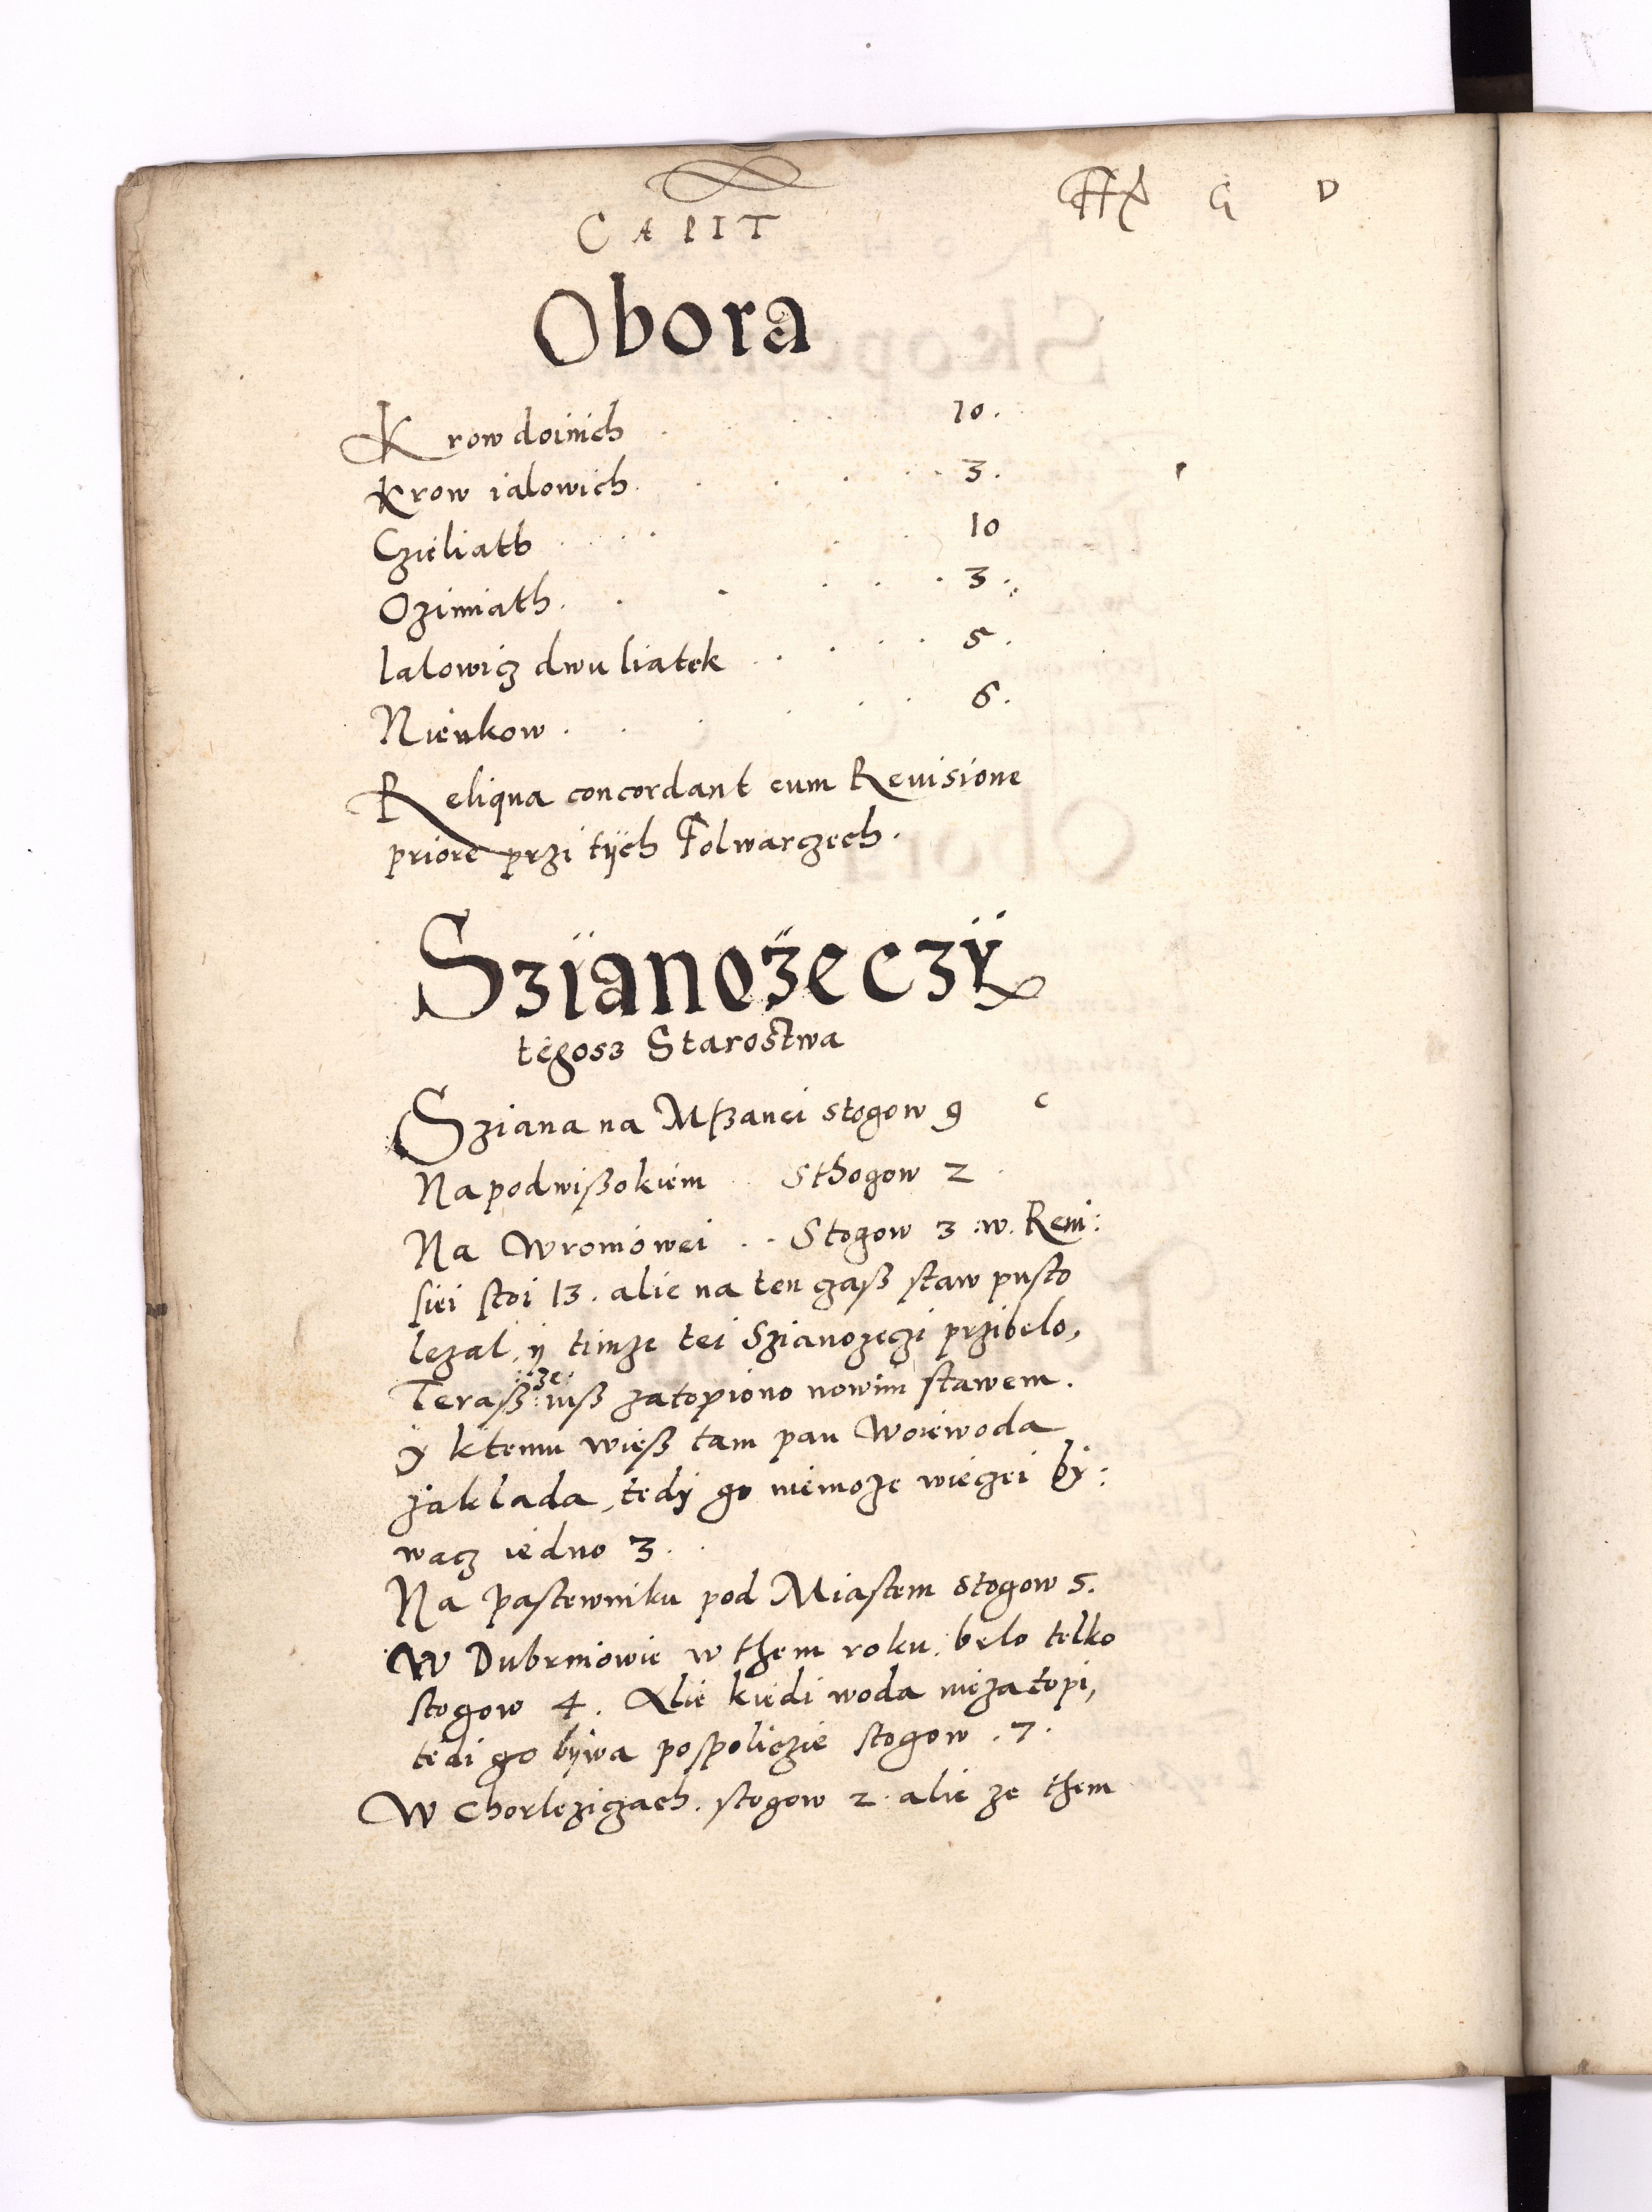 CAPIT
G D
Obora
Krow doinich 10.
Krow ialowich 3.
Czieliath 10
Ozimiath 3.
Ialowicz dwu liatek 5.
Nieukow 6.
Reliqua concordant cum Reuisione
priore przi tÿch Folwarczech.
Szianozeczÿ
tegosz Starostwa
Sziana na Mſzanei stogow 9 c
Na podwißokiem Sthogow 2
Na Wroniowei Stogow 3 :w. Reui:
siei stoi 13. alie na ten czaß staw pusto
lezal, ÿ timze tei Szianozeczi przibelo,
Teraß ze iuß zatopiono nowim stawem.
ÿ ktemu wieß tam pan Woiewoda
zaklada, tedÿ go niemoze wieczei bÿ:
wacz iedno 3.
Na pastewniku pod Miastem stogow 5.
W Dubrniowie w them roku. belo telko
stogow 4. Alie kiedi woda niezatopi,
tedi go bÿwa pospoliczie stogow. 7.
W Chorleziczach. stogow 2. alie ze them